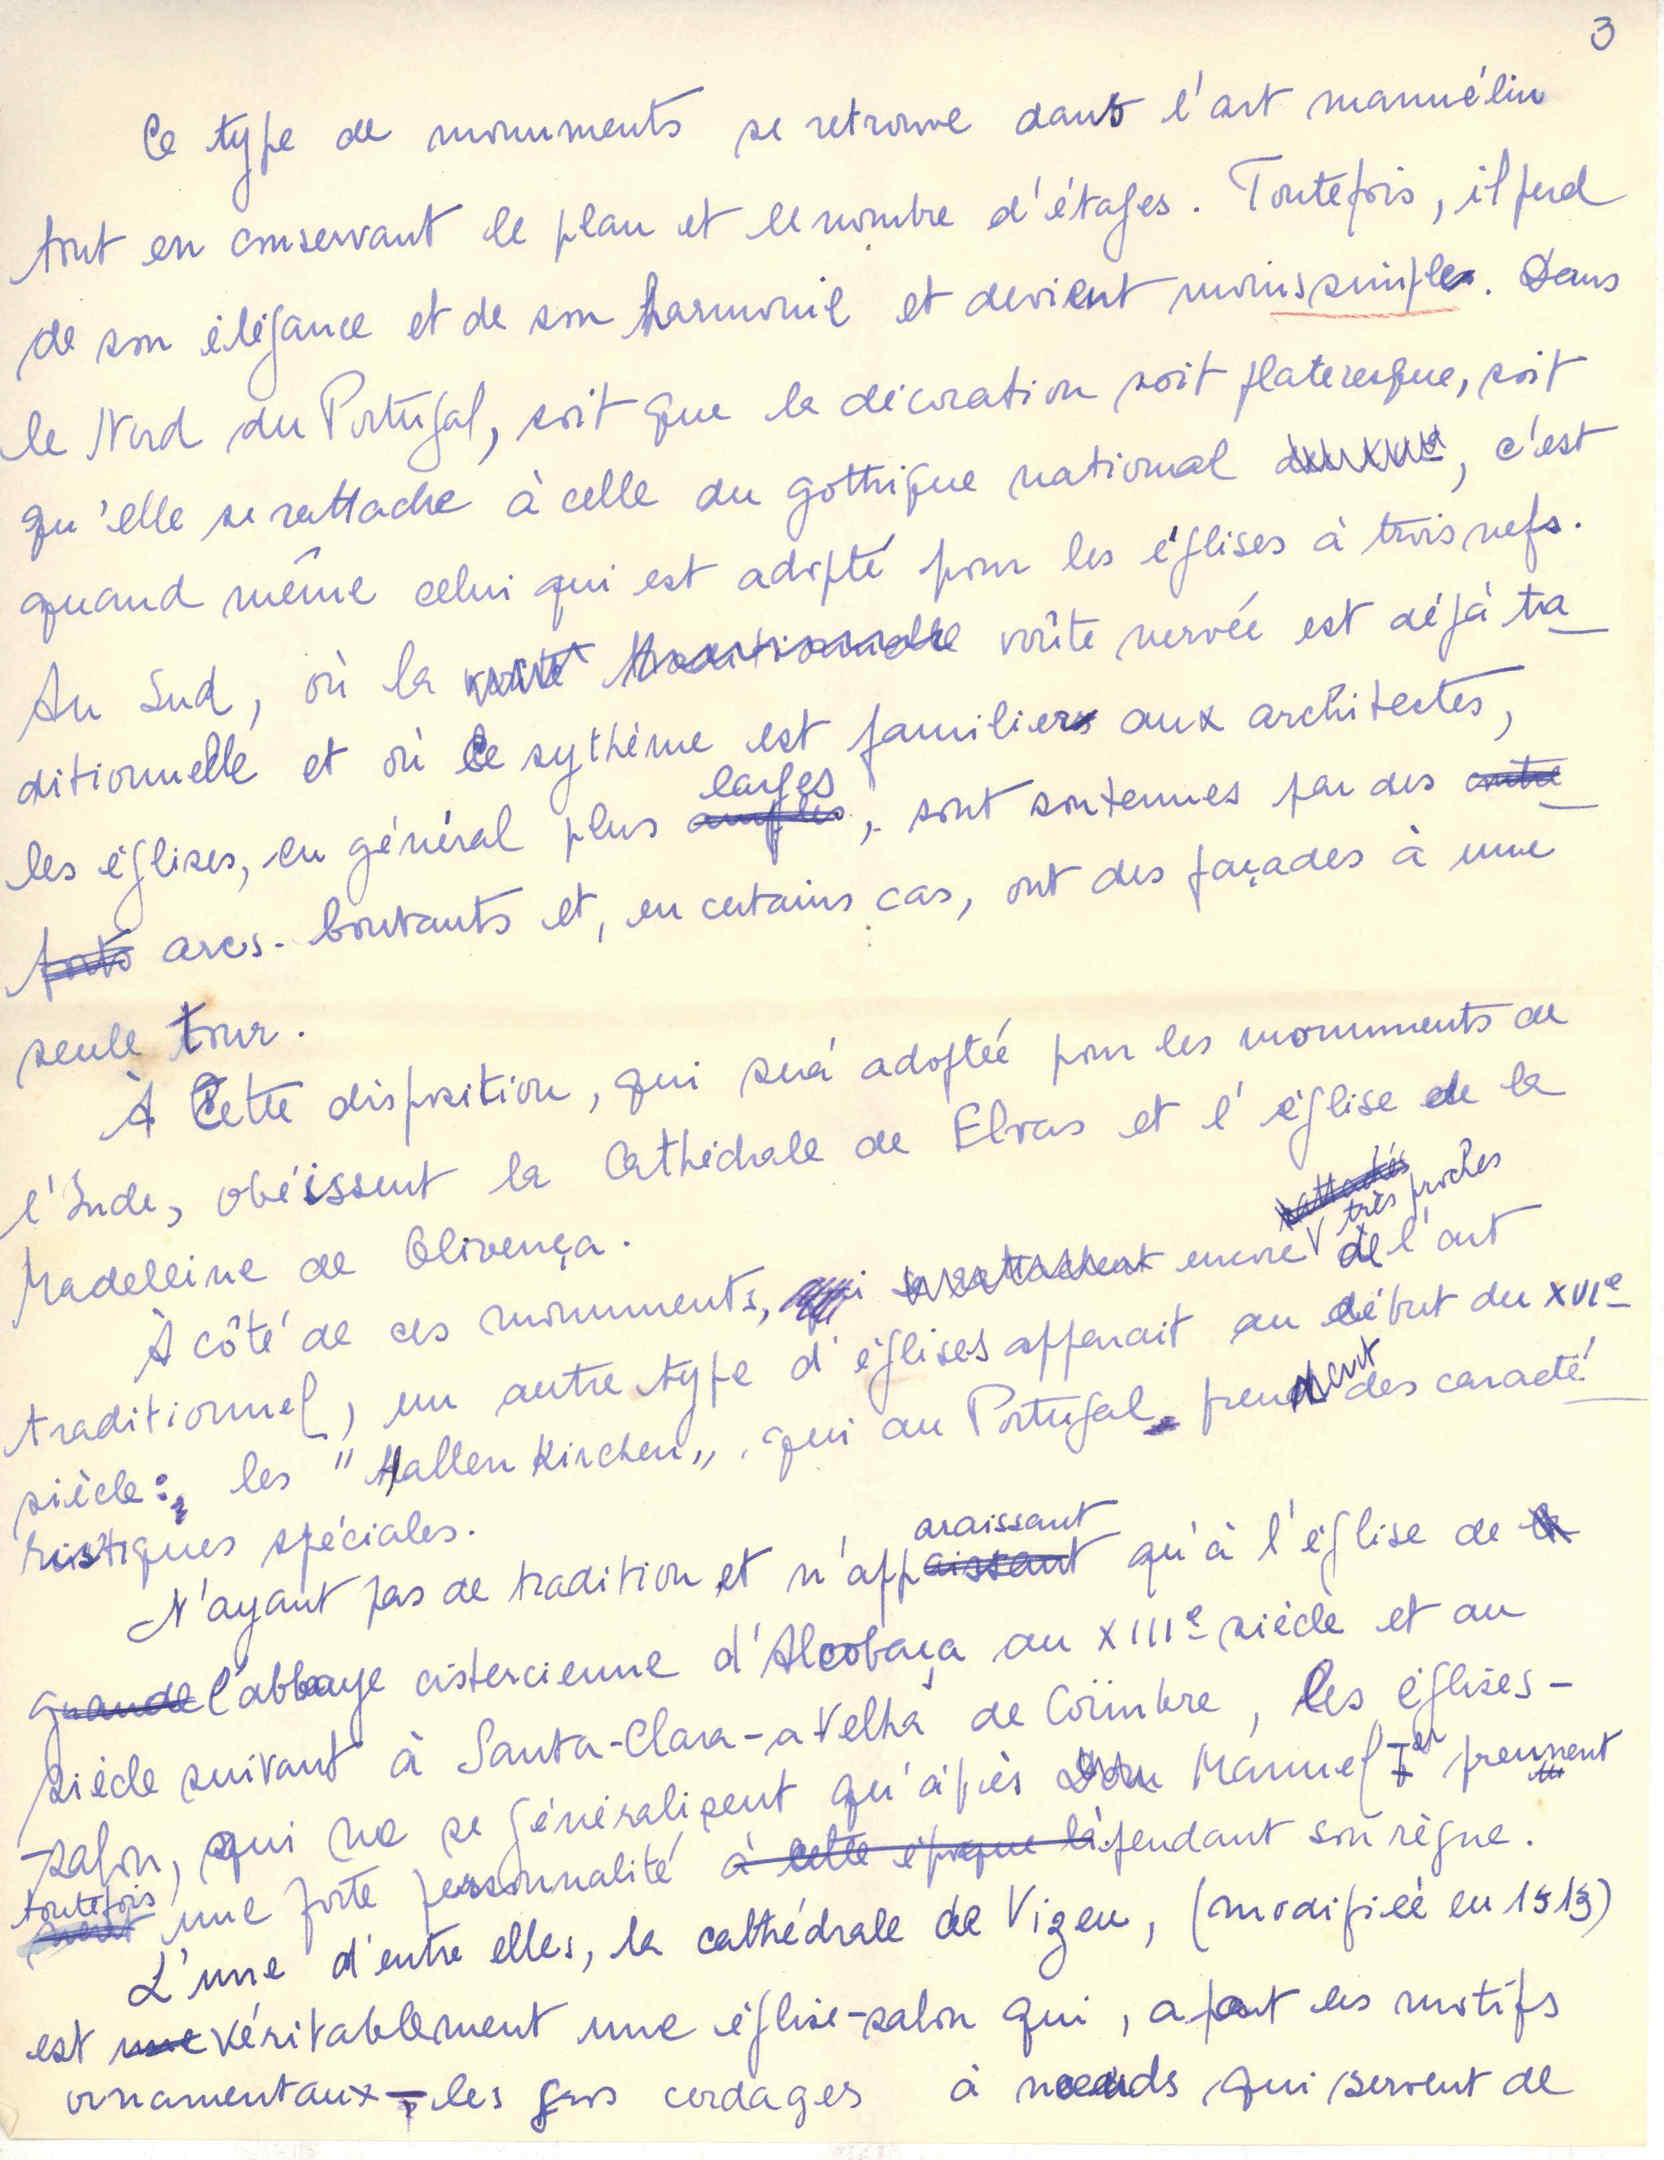 3
Ce type de monuments se retrouve dans l'art manuélin
tout en conservant le plan et le nombre d'étages. Toutefois, il perd
de son élégance et de son harmonie et devient moins simple. Dans
le Nord du Portugal, soit que la décoration soit plateresque, soit
qu'elle se rattache à celle du gothique national, c'est
quand même celui qui est adopté pour les églises à trois nefs.
Au Sud, où la voûte traditionnelle voûte nervée est déjà tra-
ditionnelle et où ce sythème est familier aux architectes,
les églises, en général plus amples larges, sont soutenues par des contre-
forts arcs-boutants et, en certains cas, ont des façades à une
seule tour.
À Cette disposition, qui será adoptée pour les monuments de
l'Inde, obéissent la Cathédrale de Elvas et l'église de la
Madeleine de Olivença.
À côté de ces monuments, qui se rattachent encore rattachés très proches de l'art
traditionnel, un autre type d'églises apparait au début du XVIe
siècle: les "Hallen Kirchen", qui au Portugal prennent des caracté-
ristiques spéciales.
N'ayant pas de tradition et n'appaissant araissant qu'à l'église de la
grande l'abbaye cistercienne d'Alcobaça au XIIIe siècle et au
siècle suivant à Santa-Clara-a-Velha de Coïmbre, les églises-
-salon, qui ne se généralisent qu'après Dom Manuel Ier prennent
toutefois une forte personnalité à cette époque là pendant son règne.
L'une d'entre elles, la cathédrale de Vizeu, (modifiée en 1513)
est une véritablement une église-salon qui, a pour les motifs
ornamentaux, les gros cordages à noeuds qui servent de